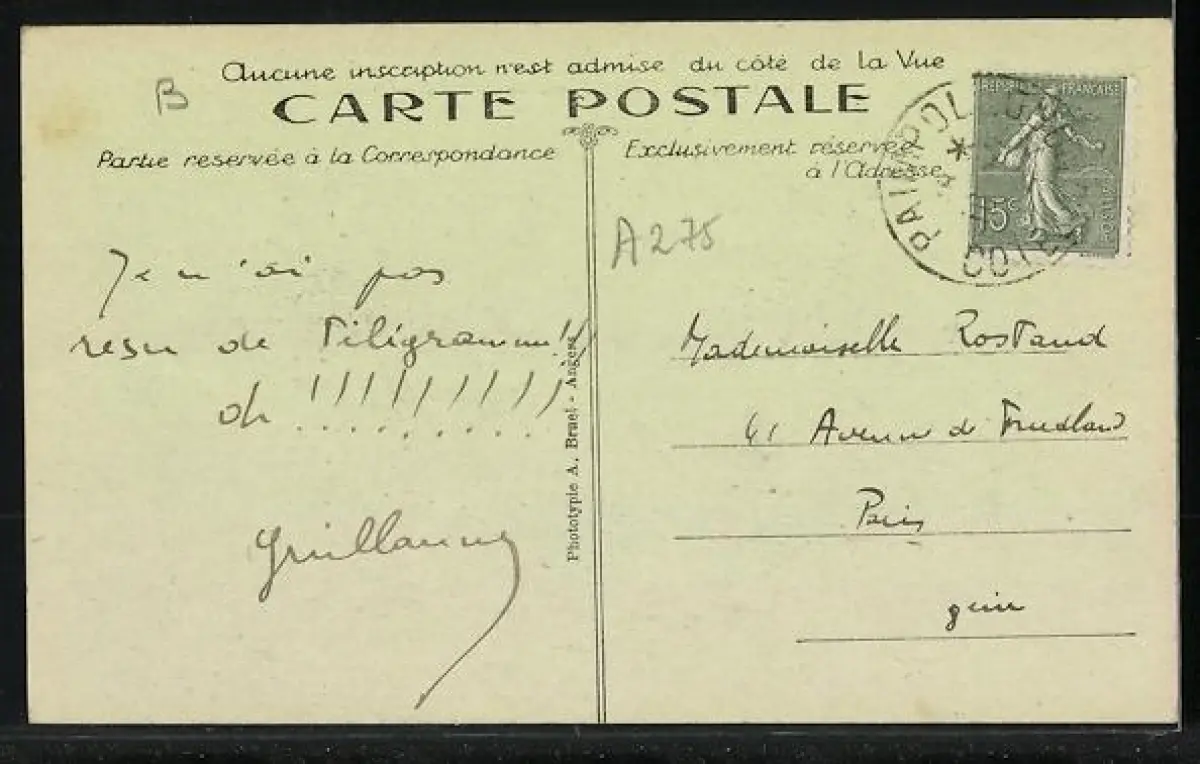 Aucune inscription n'est admise du côté de la Vue
B
CARTE POSTALE
Partie reservée à la Correspondance
Exclusivement réservée
à l'Adresse
REPUBLIQUE FRANÇAISE
15c
POSTES
PAIMPOL
COTES
A275
Je n'ai pas
resu de Tiligramm!!
oh !!!!!!!!!
Guillaume
Phototypie A. Bruel - Angers
Mademoiselle Rostand
41 Avenue de
Paris